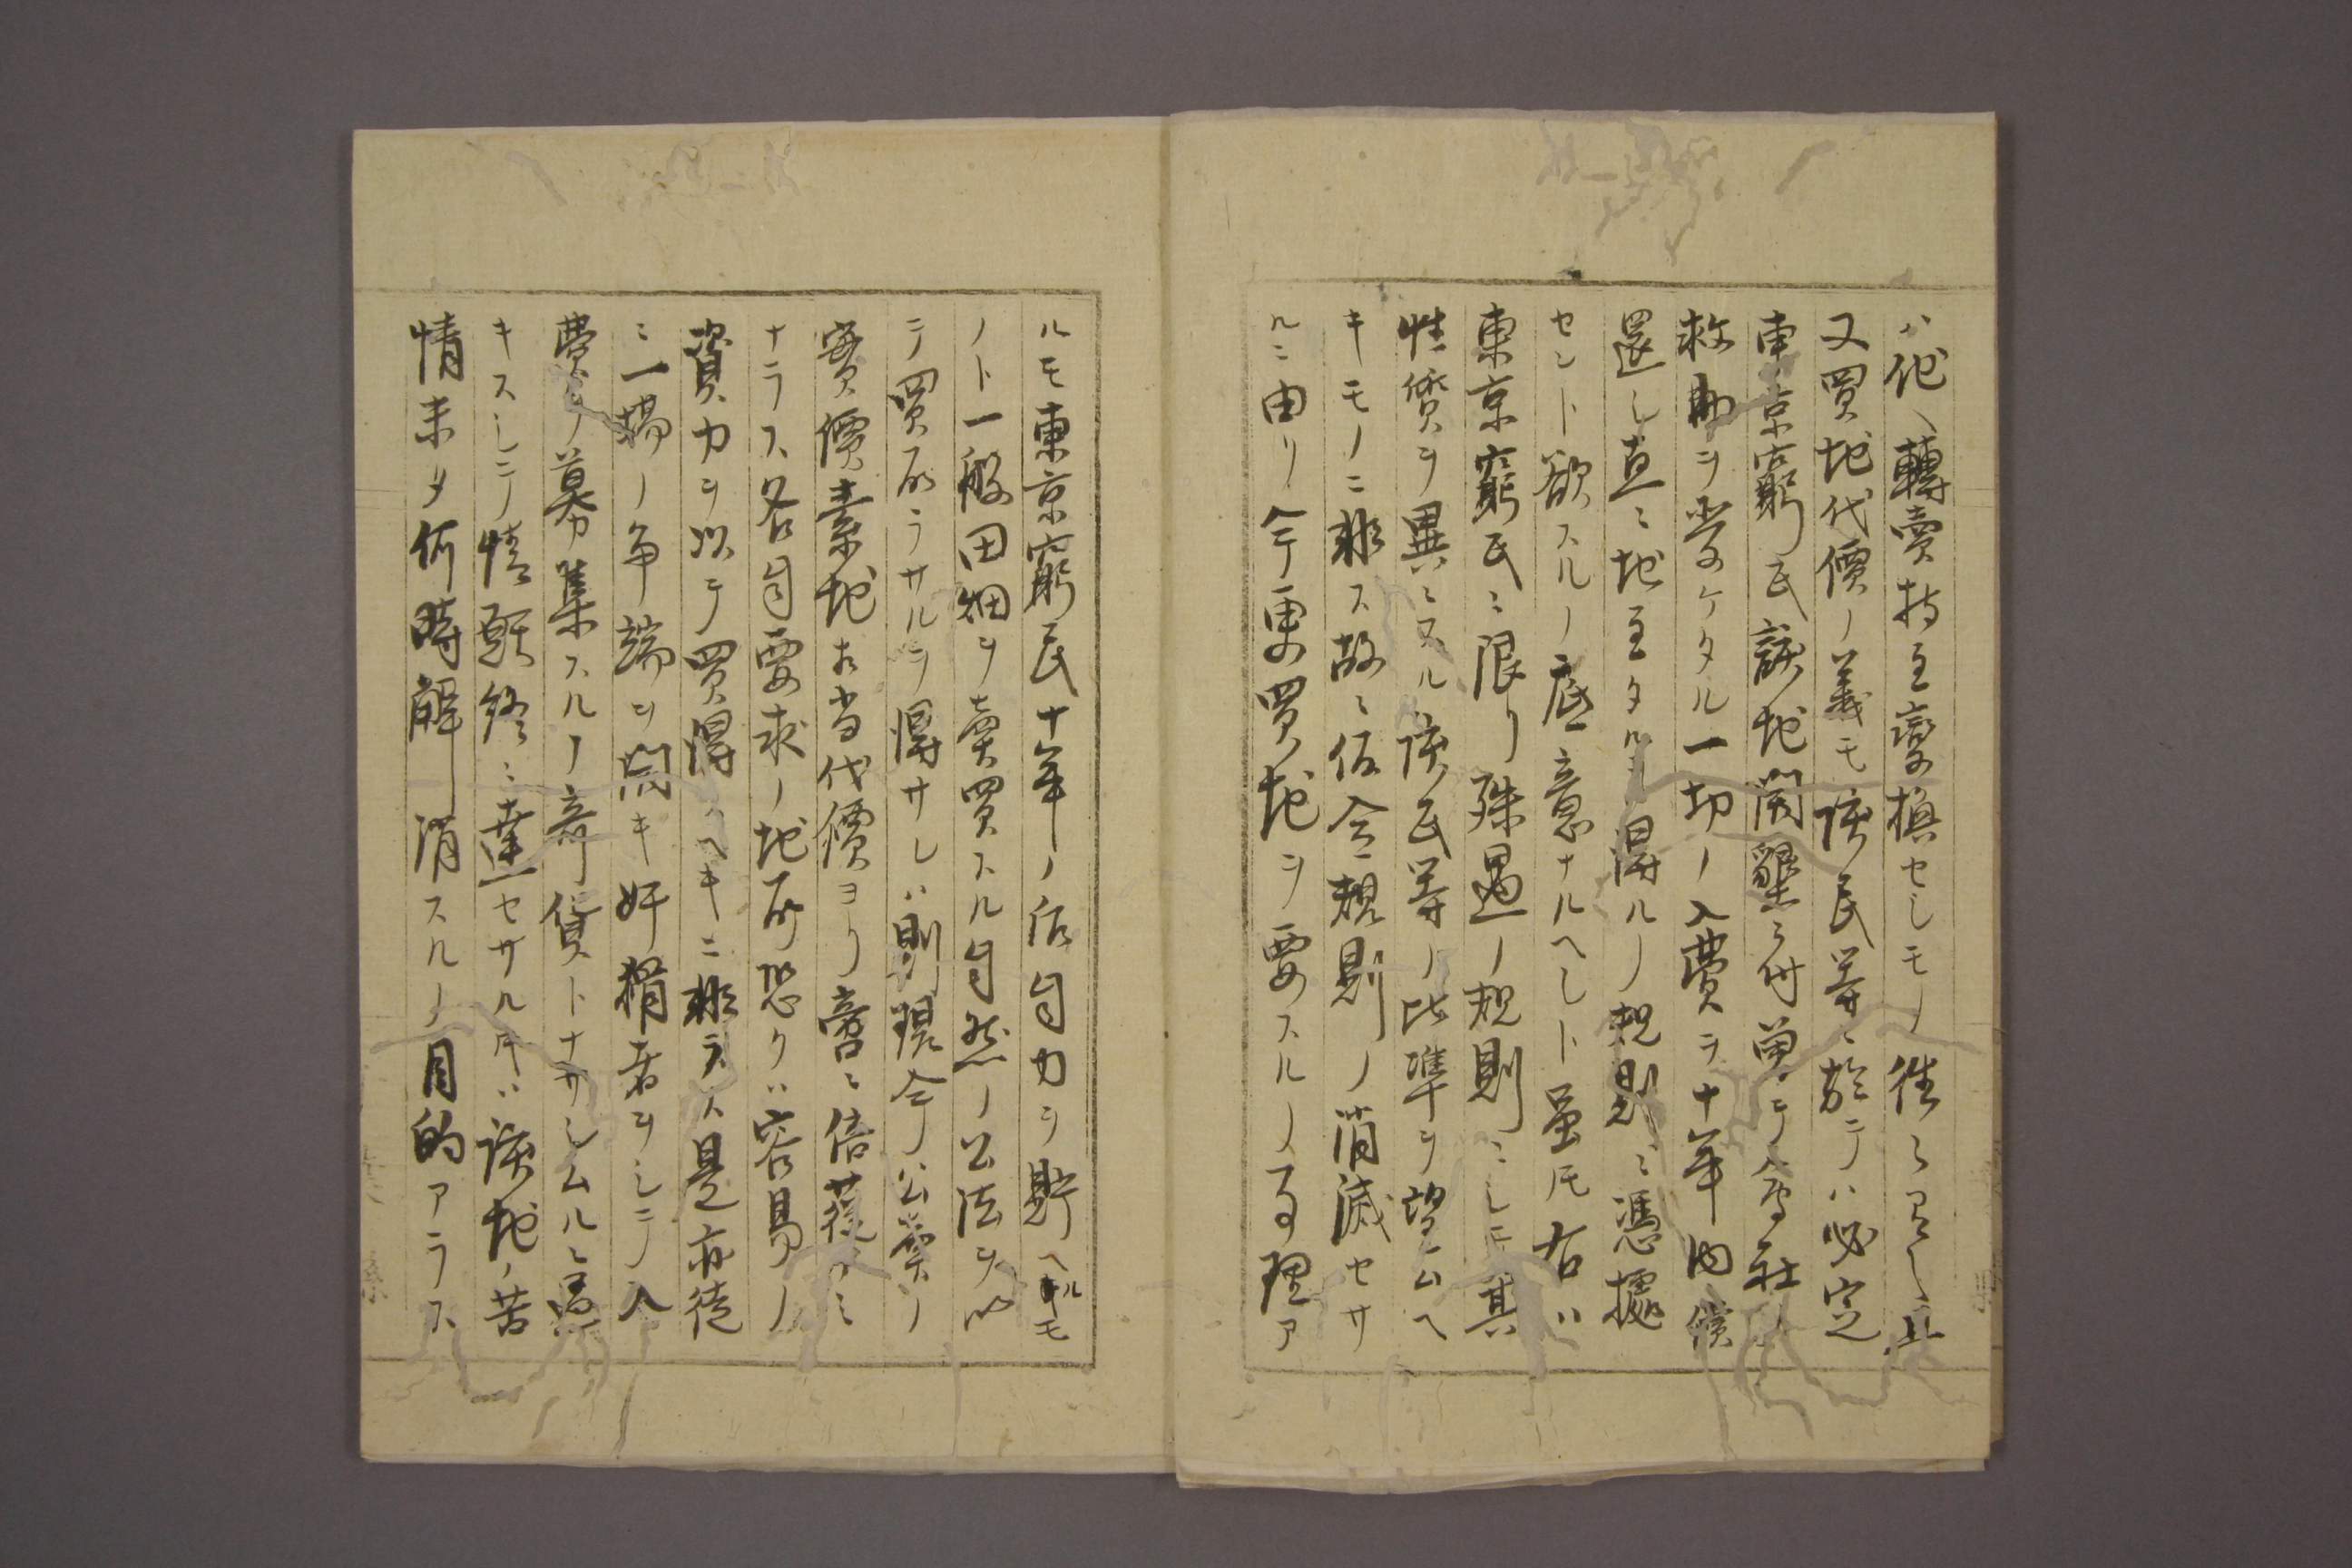 ハ他ヘ轉賣持主變換セシモノ往々アリ且
又買地代價ノ義モ該民等ニ於テハ必定
東京窮民該地開墾ニ付曽テ會社ノ
救助ヲ受ケタル一切ノ入費ヲ十年内償
還シ直ニ地主タルヲ得ルノ規則ニ憑據
セント欲スルノ底意ナルヘシト虽𪜈右ハ
東京窮民ニ限リ殊遇ノ規則ニシテ其
性質ヲ異ニスル該民等ノ比準ヲ望ムヘ
キモノニ非ス故ニ仮令規則ノ消滅セサ
ルニ由リ今更買地ヲ要スルノ理ア
ルモ東京窮民十年ノ后自力ヲ貯ヘルモ
ノト一般田畑ヲ賣買スル自然ノ公法ヲ以
テ買取ラサルヲ得サレハ則現今ノ公賣ノ
實價素地相当代價ヨリ啻ニ倍蓰ノミ
ナラス各自要求ノ地所恐クハ容易ノ
資力ヲ以テ買得スヘキニ非ラス是亦徒
ニ一場ノ争端ヲ開キ奸猾者ヲシテ入
費ノ募集スルノ奇貨トナサシムルニ過
キスシテ情願終ニ達セサル𪜈ハ該地ノ苦
情未タ何時解消スルノ目的アラス